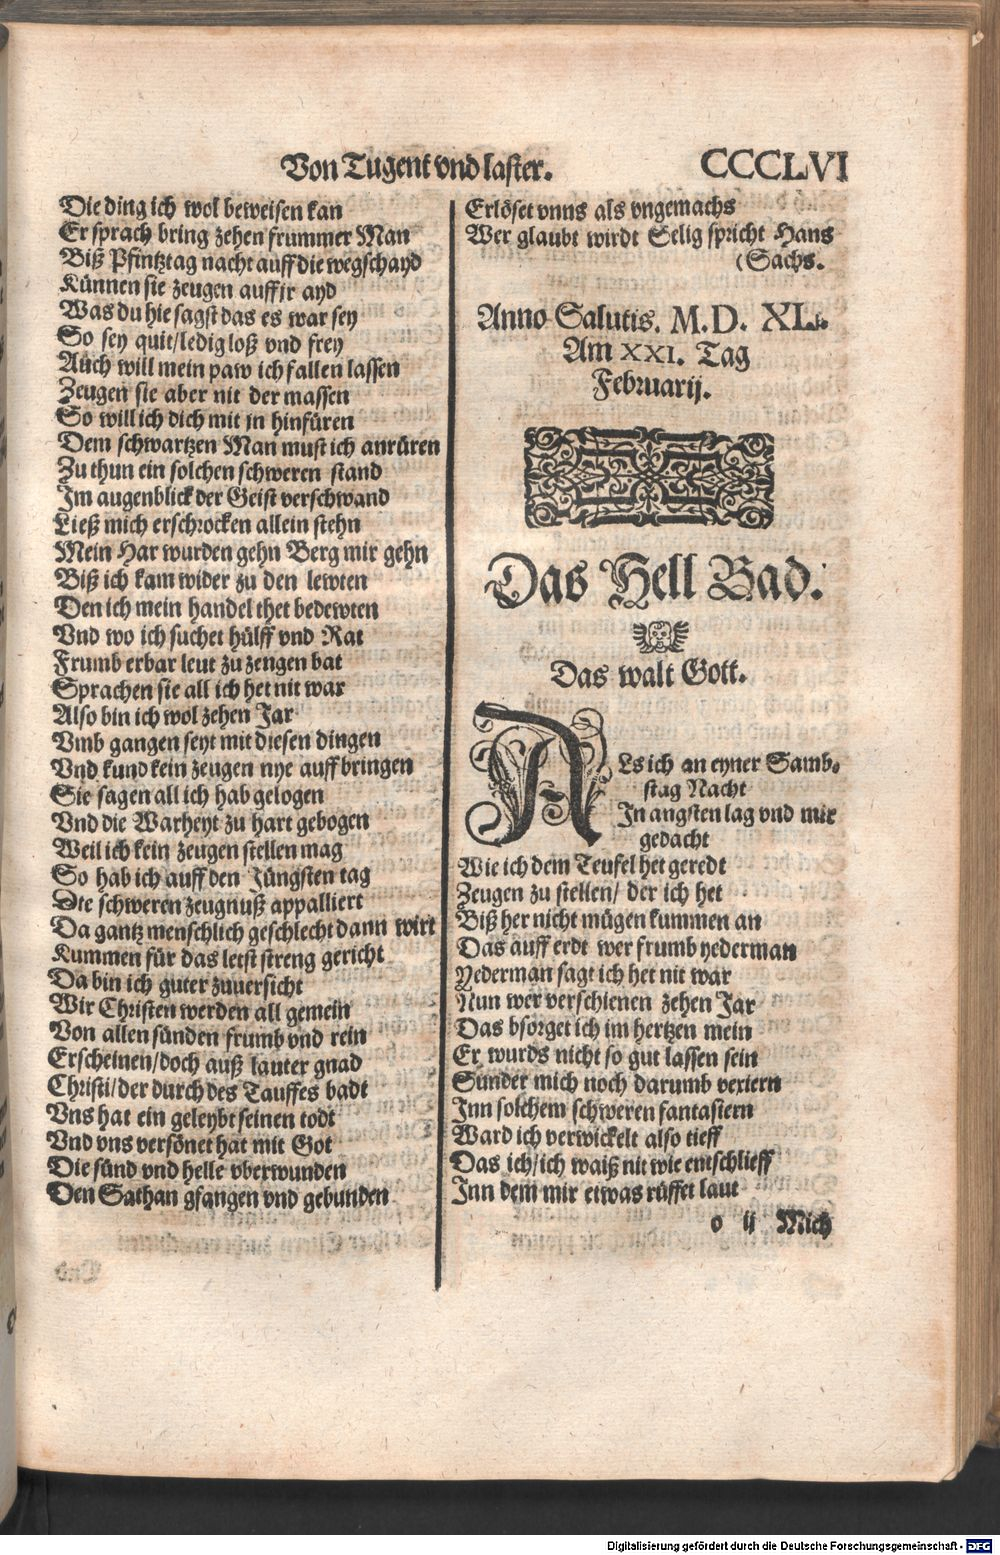 Von Tugent vnd laster.
CCCLVI
Die ding ich wol beweisen kan
Er sprach bring zehen frummer Man
Biß Pfintztag nacht auff die wegschayd
Künnen sie zeugen auff jr ayd
Was du hie sagst das es war sey
So sey quit/ledig loß vnd frey
Auch will mein paw ich fallen lassen
Zeugen sie aber nit der massen
So will ich dich mit jn hinfüren
Dem schwartzen Man must ich anrüren
Zu thun ein solchen schweren stand
Im augenblick der Geist verschwand
Ließ mich erschrocken allein stehn
Mein Har wurden gehn Berg mir gehn
Biß ich kam wider zu den lewten
Den ich mein handel thet bedewten
Vnd wo ich suchet hülff vnd Rat
Frumb erbar leut zu zengen bat
Sprachen sie all ich het nit war
Also bin ich wol zehen Jar
Vmb gangen seyt mit diesen dingen
Vnd kund kein zeugen nye auff bringen
Sie sagen all ich hab gelogen
Vnd die Warheyt zu hart gebogen
Weil ich kein zeugen stellen mag
So hab ich auff den Jüngsten tag
Dte schweren zeugnuß appalliert
Da gantz menschlich geschlecht dann wirt
Kummen für das letst streng gericht
Da bin ich guter zuuersicht
Wir Christen werden all gemein
Von allen sünden frumb vnd rein
Erscheinen/doch auß lauter gnad
Christi/der durch des Tauffes badt
Vns hat ein geleybt seinen todt
Vnd vns versönet hat mit Got
Die sünd vnd helle vberwunden
Den Sathan gfangen vnd gebunden
Erlöset vnns als vngemachs
Wer glaubt wirdt Selig spricht Hans
(Sachs.
Anno Salutis. M.D. XLj.
Am XXI. Tag
Februarij.
Das Hell Bad.
Das walt Gott.
ALs ich an eyner Samb-
stag Nacht
In angsten lag vnd mir
gedacht
Wie ich dem Teufel het geredt
Zeugen zu stellen/ der ich het
Biß her nicht mügen kummen an
Das auff erdt wer frumb yederman
Yederman sagt ich het nit war
Nun wer verschienen zehen Jar
Das bsorget ich im hertzen mein
Er wurds nicht so gut lassen sein
Sunder mich noch darumb vexiern
Inn solchem schweren fantasiern
Ward ich verwickelt also tieff
Das ich/ich waiß nit wie entschlieff
Inn dem mir etwas rüffet laut
o ij Mich
Digitalisierung gefördert durch die Deutsche Forschungsgemeinschaft - DFG